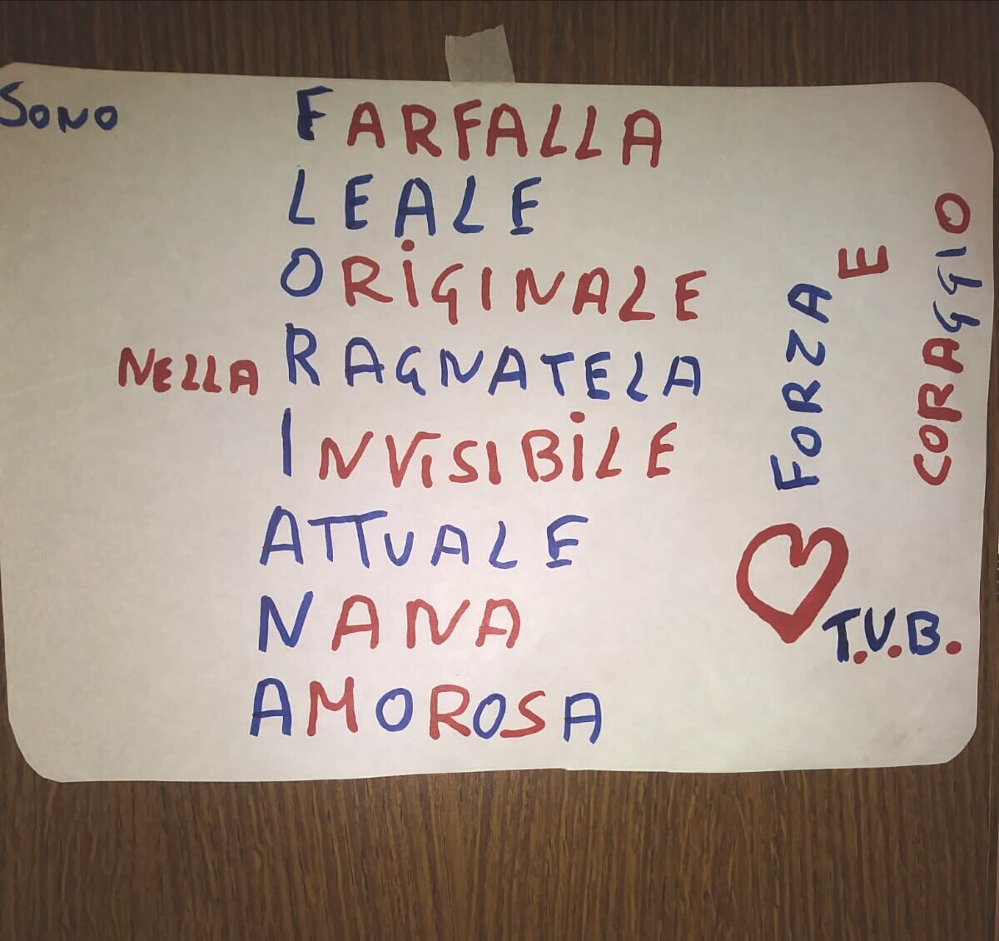 SONO
FARFALLA
LEALE
ORIGINALE
NELLA RAGNATELA
INVISIBILE
ATTUALE
NANA
AMOROSA
FORZA
E
CORAGGIO
T.V.B.